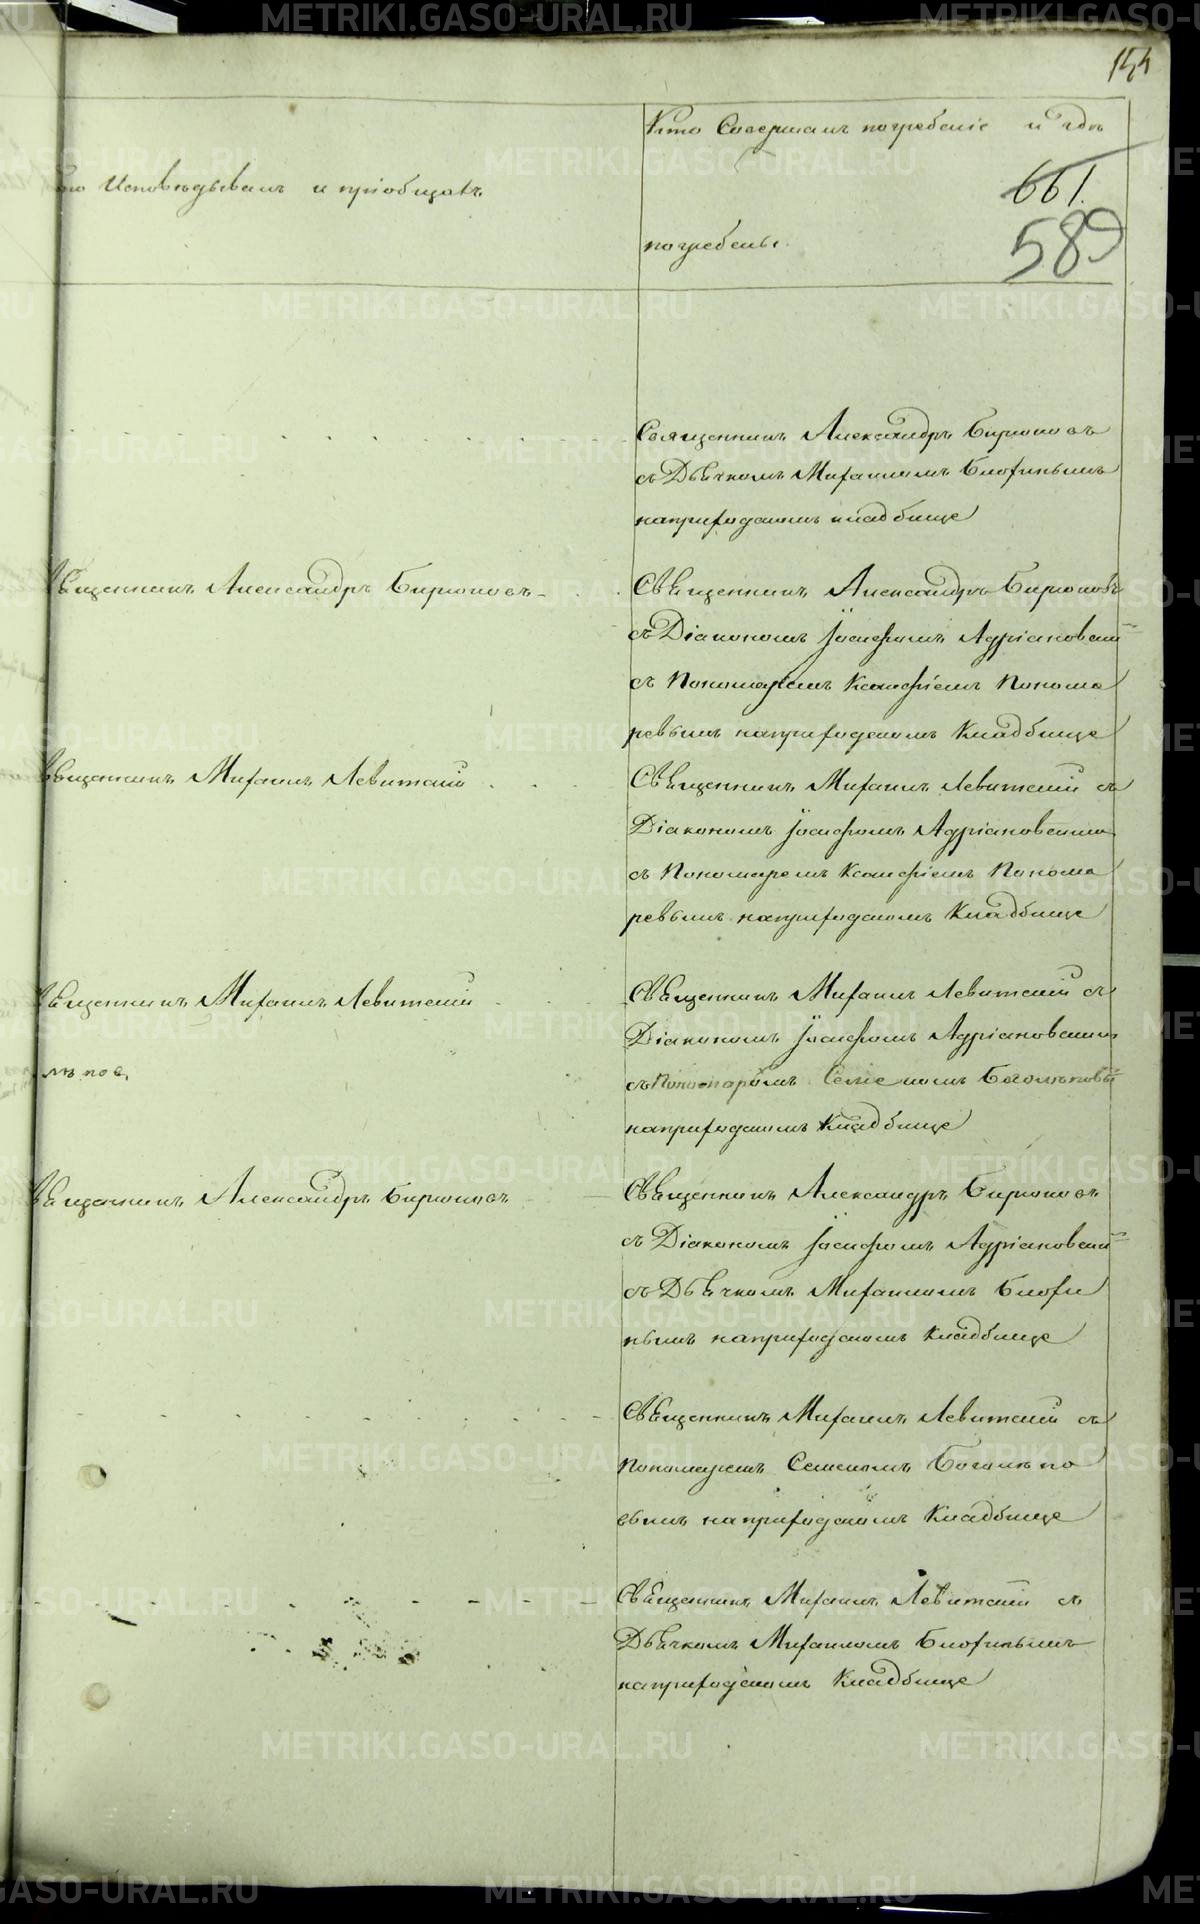 154
Кто Совершалъ погребеніе и гдѣ
то Исповѣдывалъ и пріобщалъ
661.
589
погребены.
Священникъ Александръ Бирюковъ
съ Дьячкомъ Михаиломъ Блохинымъ
на приходскомъ кладбище
вященникъ Александръ Бирюковъ
Священникъ Александръ Бирюковъ
съ Діакономъ Іосифомъ Адріановски
съ Пономаремъ Ксанфіемъ Понома
ревымъ на приходскомъ Кладбище
вященникъ Михаилъ Левитскій
Священникъ Михаилъ Левитскій съ
Діакономъ Іосифомъ Адріановскимъ
съ Пономаремъ Ксанфіемъ Понома
ревымъ на приходскомъ Кладбище
вященникъ Михаилъ Левитскій
Священникъ Михаилъ Левитскій съ
Діакономъ Іосифомъ Адріановскимъ
съ Пономаремъ Семеномъ Боголѣповы
на приходскомъ Кладбище
лѣпов
вященникъ Александръ Бирюковъ
Священникъ Александръ Бирюковъ
съ Діакономъ Іосифомъ Адріановски
съ Дьячкомъ Михаиломъ Блохи
нымъ на приходскомъ Кладбище
Священникъ Михаилъ Левитскій съ
Пономаремъ Семеномъ Боголѣпо
вымъ на приходскомъ Кладбище
Священникъ Михаилъ Левитскій съ
Дьячкомъ Михаиломъ Блохинымъ
на приходскомъ Кладбище
METRIKI.GASO-URAL.RU